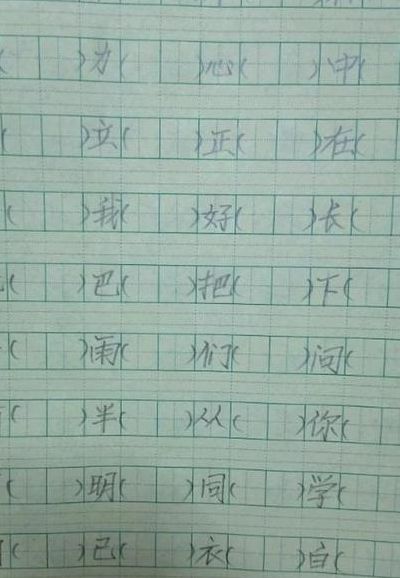 ( )力( )心( )中(
( )立( )正( )在(
( )我( )好( )长(
( )巴( )把( )下(
( )雨( )们( )问(
( )半( )从( )你(
( )明( )同( )学(
( )己( )衣( )白(